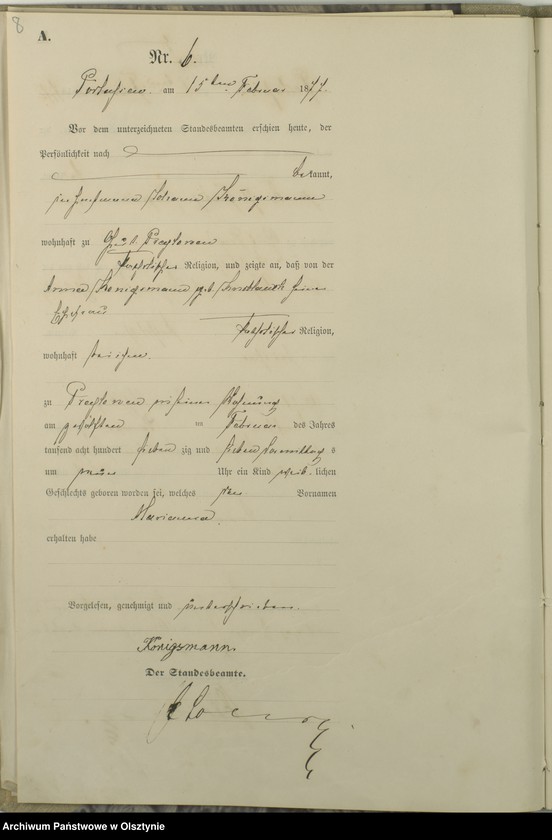 8
A.
Nr. 6.
am 15ten Februar 1877.
Vor dem unterzeichneten Standesbeamten erschien heute, der
Persönlichkeit nach
bekannt,
Johann Königsmann
wohnhaft zu
katholischer Religion, und zeigte an, daß von der
Königsmann geb. seiner
Ehefrau
katholischer Religion,
wohnhaft bei ihm.
zu in seiner Wohnung
am zwölften ten Februar des Jahres
tausend acht hundert sieben zig und sieben s
um neun Uhr ein Kind weib lichen
Geschlechts geboren worden sei, welches den Vornamen
Marianna.
erhalten habe
Vorgelesen, genehmigt und unterschrieben.
Königsmann.
Der Standesbeamte.
Archiwum Państwowe w Olsztynie